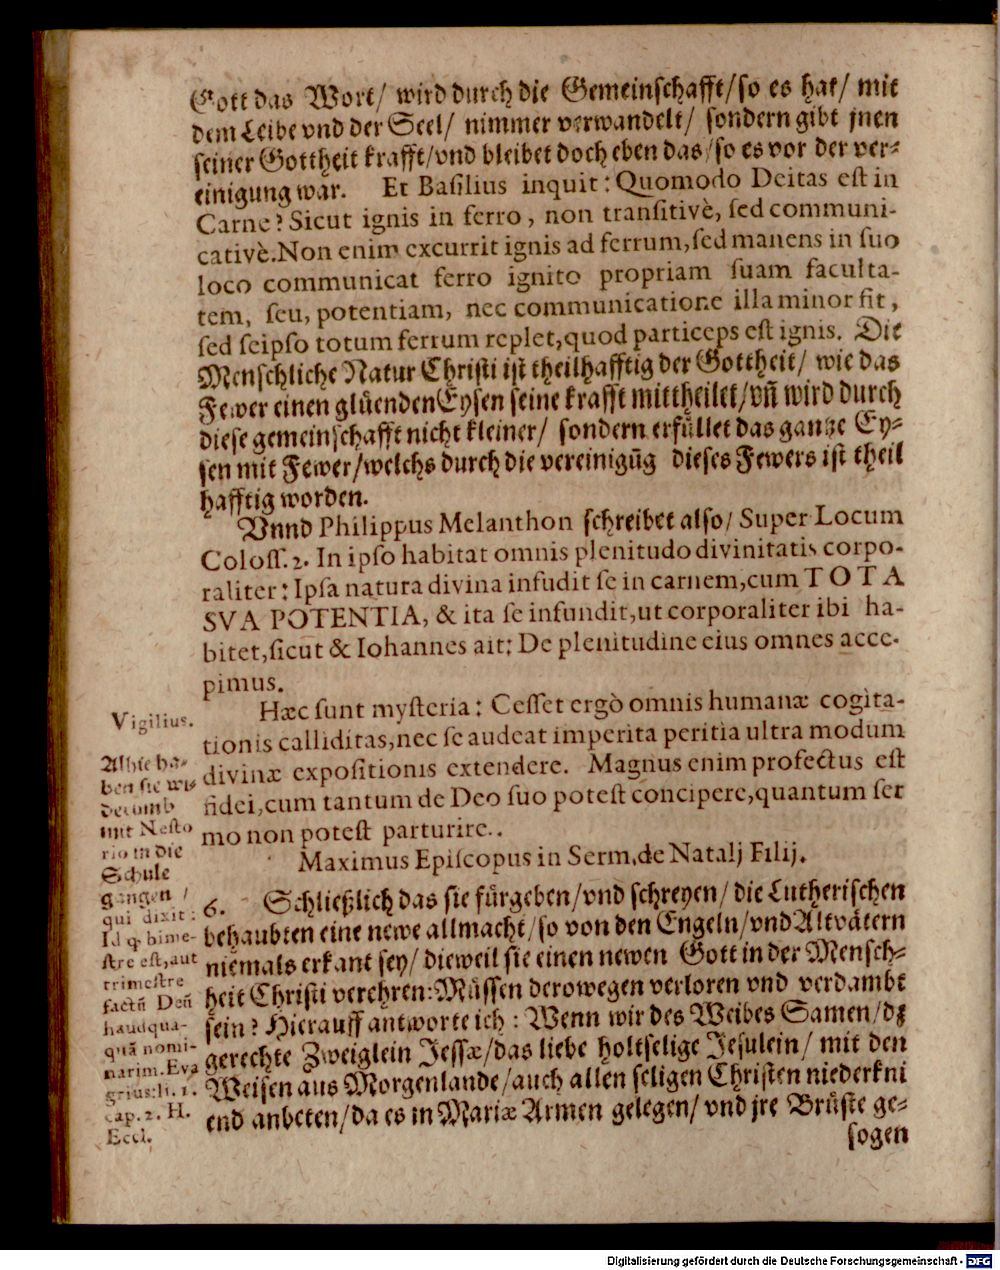 Gott das Wort/ wird durch die Gemeinschafft/so es hat/ mit
dem Leibe vnd der Seel/ nimmer verwandelt/ sondern gibt jnen
seiner Gottheit krafft/vnd bleibet doch eben das/so es vor der ver-
einigung war. Et Basilius inquit: Quomodo Deitas est in
Carne? Sicut ignis in ferro, non transitivè, sed communi-
cativè. Non enim excurrit ignis ad ferrum, sed manens in suo
loco communicat ferro ignito propriam suam faculta-
tem, seu, potentiam, nec communicatione illa minor fit,
sed seipso totum ferrum replet, quod particeps est ignis. Die
Menschliche Natur Christi ist theilhafftig der Gottheit/ wie das
Fewer einen glüenden Eysen seine krafft mittheilet/vñ wird durch
diese gemeinschafft nicht kleiner/ sondern erfüllet das gantze Ey-
sen mit Fewer/welchs durch die vereinigũg dieses Fewers ist theil
hafftig worden.
Vnnd Philippus Melanthon schreibet also/ Super Locum
Coloss. 2. In ipso habitat omnis plenitudo divinitatis corpo-
raliter: Ipsa natura divina infudit se in carnem, cum TOTA
SVA POTENTIA, & ita se infundit, ut corporaliter ibi ha-
bitet, sicut & Iohannes ait: De plenitudine eius omnes acce-
pimus.
Hæc sunt mysteria: Cesset ergò omnis humanæ cogita-
tionis calliditas, nec se audeat imperita peritia ultra modum
divinæ expositionis extendere. Magnus enim profectus est
fidei, cum tantum de Deo suo potest concipere, quantum ser
mo non potest parturire..
Maximus Episcopus in Serm. de Natalj Filij.
6. Schließlich das sie fürgeben/vnd schreyen/ die Lutherischen
behaubten eine newe allmacht/so von den Engeln/vnd Altvätern
niemals erkant sey/ dieweil sie einen newen Gott in der Mensch-
heit Christi verehren: Müssen derowegen verloren vnd verdambt
sein? Hierauff antworte ich: Wenn wir des Weibes Samen/dz
gerechte Zweiglein Jessæ/das liebe holtselige Jesulein/ mit den
Weisen aus Morgenlande/auch allen seligen Christen niederkni
end anbeten/da es in Mariæ Armen gelegen/ vnd jre Brüste ge-
sogen
Vigilius.
Alhie ha-
ben sie wi-
deromb
mit Nesto
rio in die
Schule
gangen /
qui dixit:
Id q̃ bime-
stre est, aut
trimestre
factũ Deũ
haudqua-
quã nomi-
narim. Eva
grius: li. 1.
cap. 2. H.
Eccl.
Digitalisierung gefördert durch die Deutsche Forschungsgemeinschaft - DFG